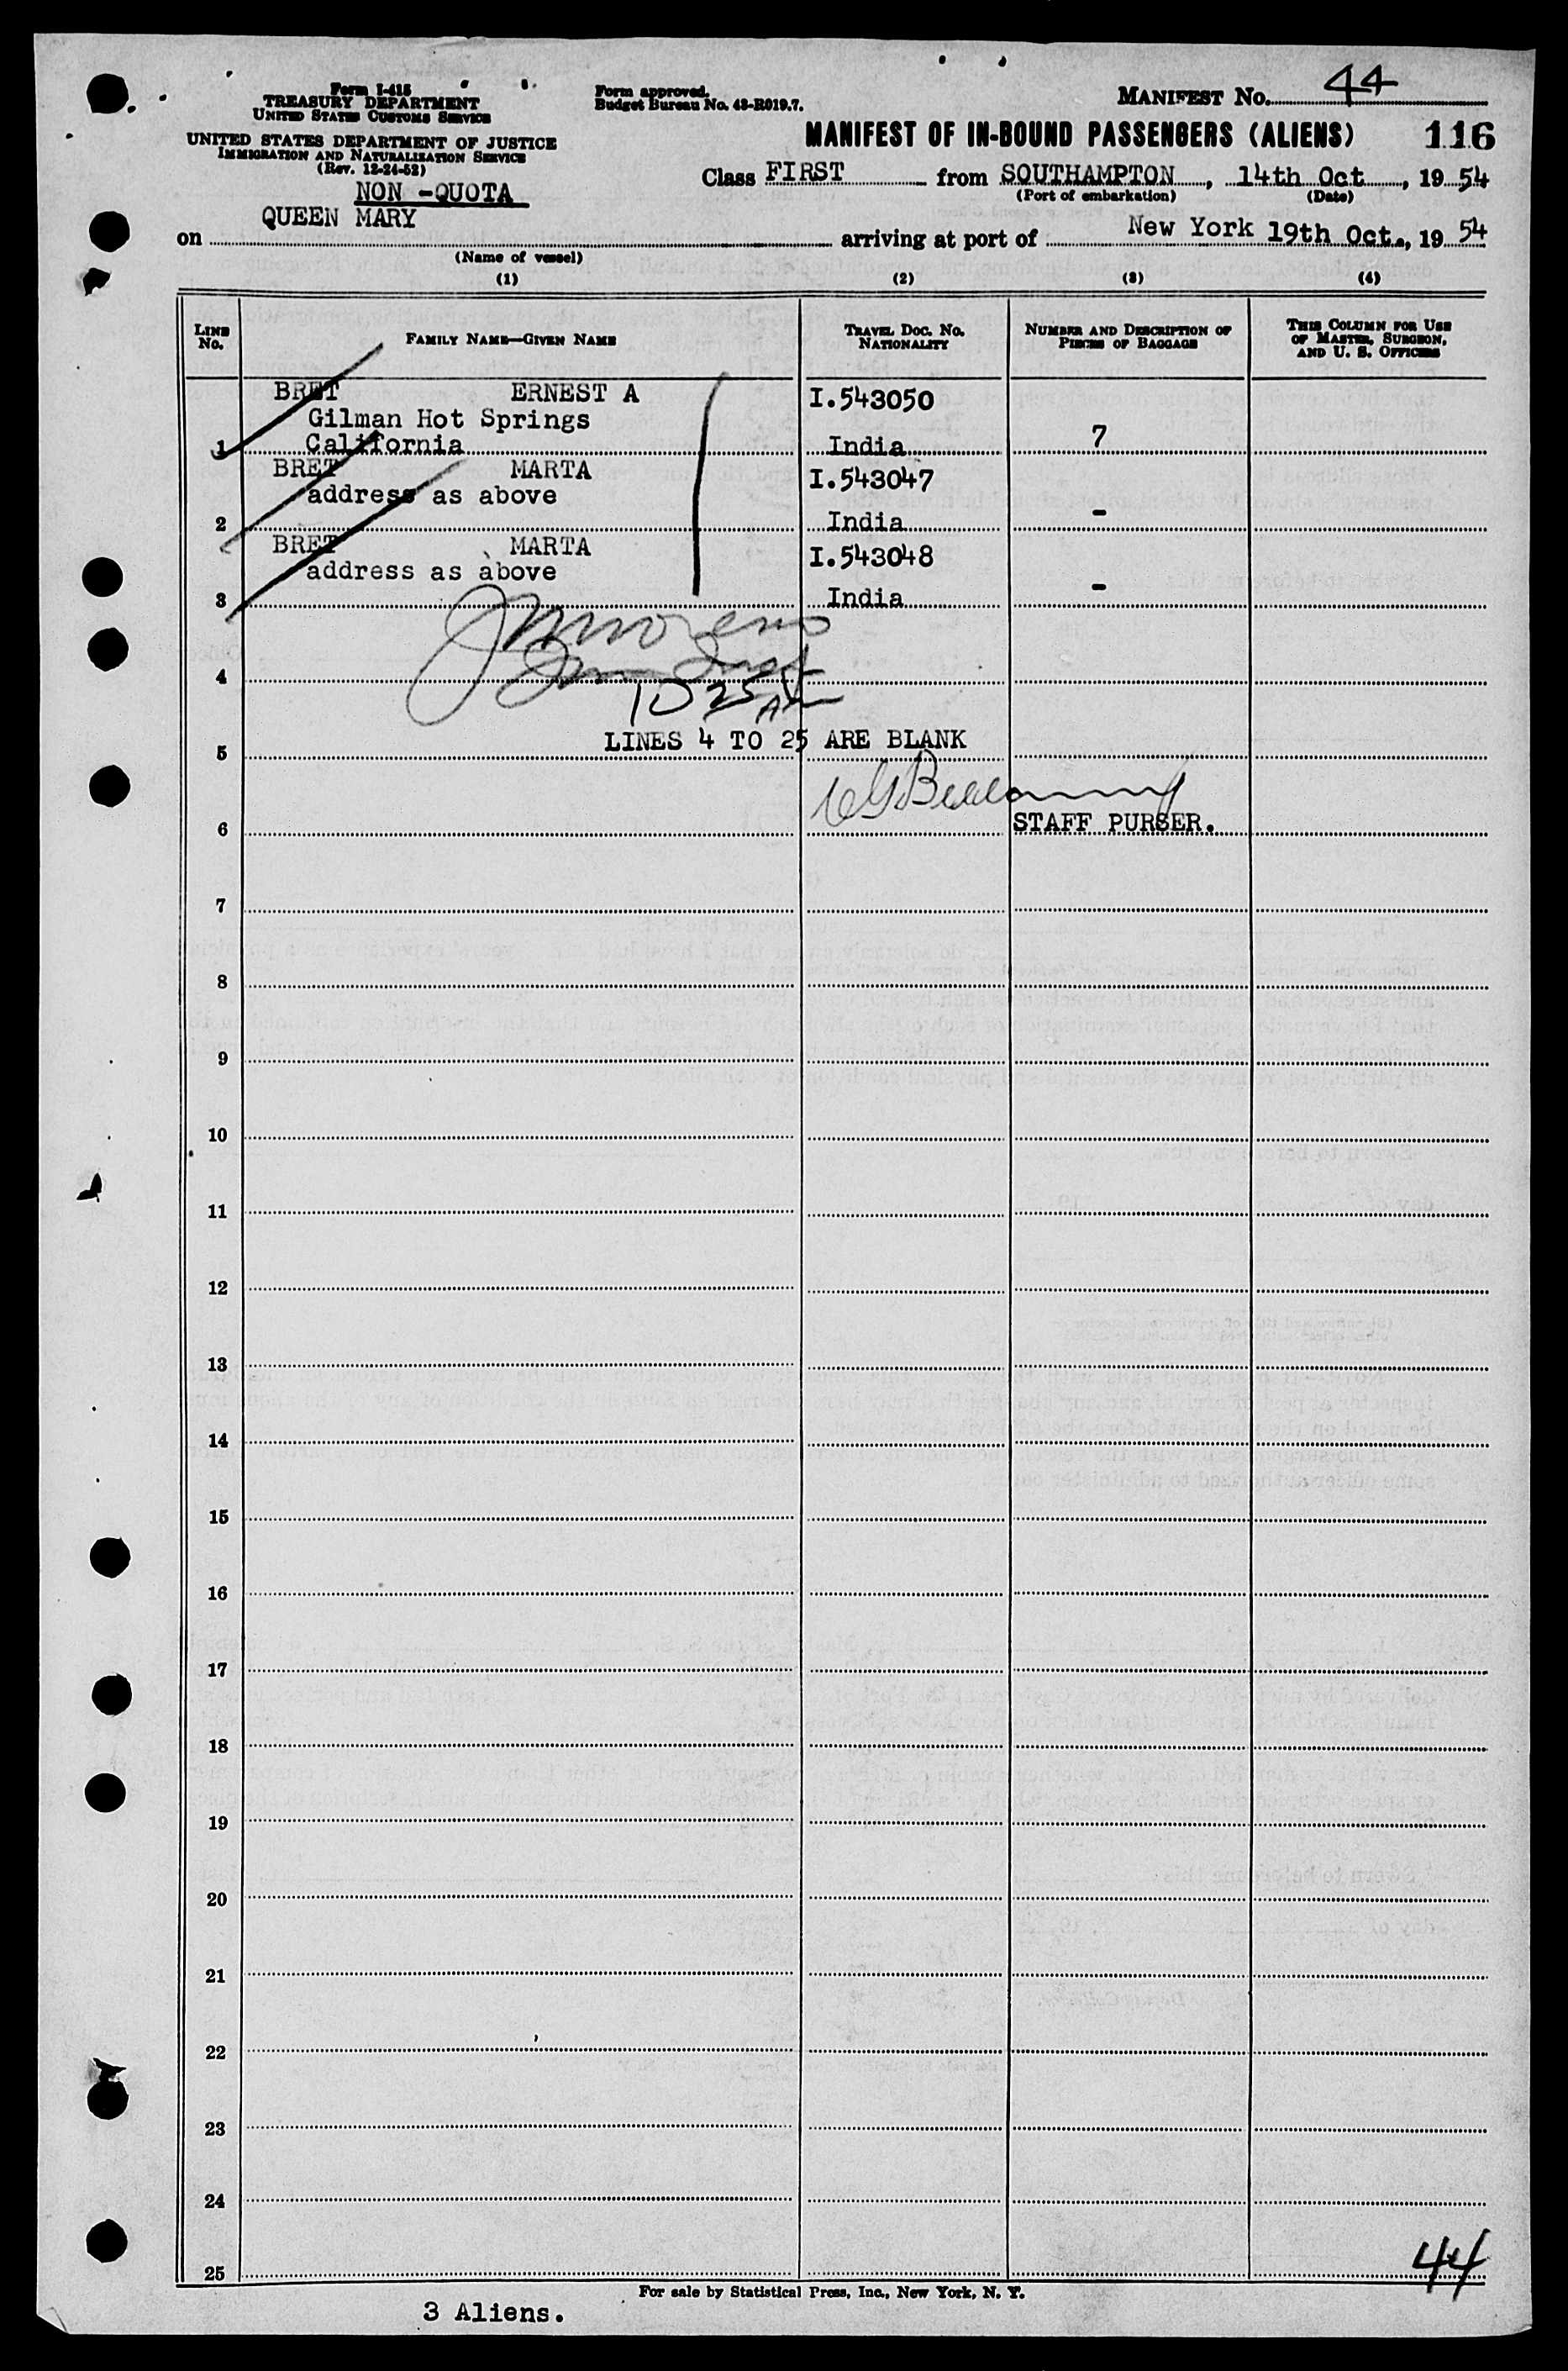 Form I-415
TREASURY DEPARTMENT
UNITED STATES CUSTOMS SERVICE
UNITED STATES DEPARTMENT OF JUSTICE
IMMIGRATION AND NATURALIZATION SERVICE
(Rev. 12-24-52)
NON -QUOTA
Form approved.
Budget Bureau No. 43-R019.7.
MANIFEST No. 44
MANIFEST OF IN-BOUND PASSENGERS (ALIENS) 116
Class FIRST from SOUTHAMPTON, 14th Oct, 19 54
(Port of embarkation) (Date)
on QUEEN MARY arriving at port of New York 19th Oct., 19 54
(Name of vessel)
(1) (2) (3) (4)
LINE No. FAMILY NAME—GIVEN NAME TRAVEL DOC. No. NATIONALITY NUMBER AND DESCRIPTION OF PIECES OF BAGGAGE THIS COLUMN FOR USE OF MASTER, SURGEON, AND U. S. OFFICERS
BRET ERNEST A I.543050
Gilman Hot Springs
1 California India 7
BRET MARTA I.543047
address as above
2 India -
BRET MARTA I.543048
address as above
3 India -
4
10 25 AM
LINES 4 TO 25 ARE BLANK
5
6 STAFF PURSER.
7
8
9
10
11
12
13
14
15
16
17
18
19
20
21
22
23
24
25
44
For sale by Statistical Press, Inc., New York, N. Y.
3 Aliens.